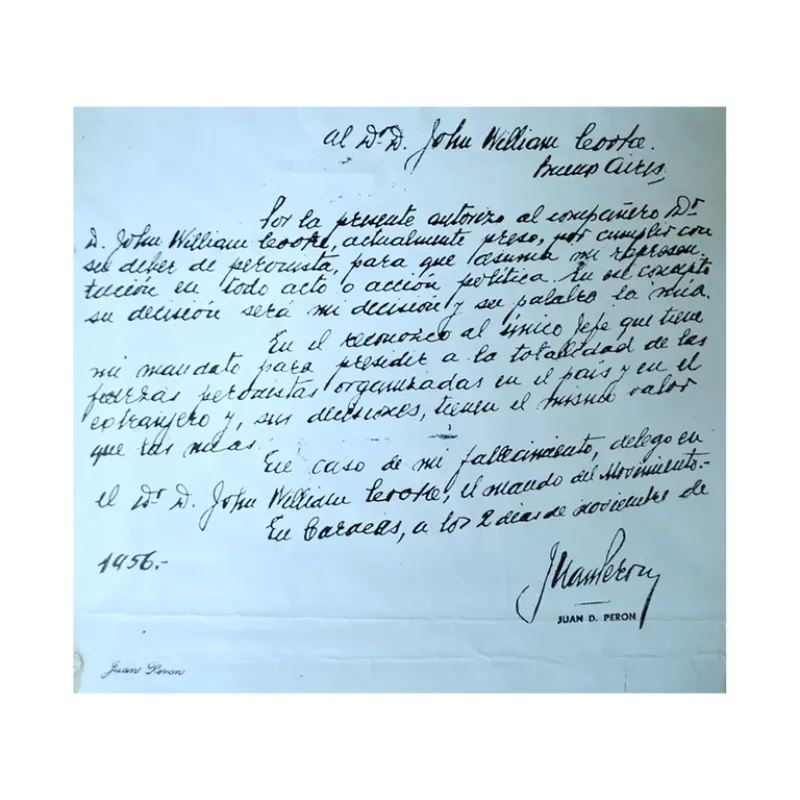 al Dr. D. John William Cooke.
Buenos Aires
Por la presente autorizo al compañero Dr
D. John William Cooke, actualmente preso, por cumplir con
su deber de peronista, para que asuma mi represen
tación en todo acto o acción política. En ese concepto
su decisión será mi decisión y su palabra la mía.
En el reconozco al único jefe que tiene
mi mandato para presidir a la totalidad de las
fuerzas peronistas organizadas en el país y en el
extranjero y, sus decisiones, tienen el mismo valor
que las mías.
En caso de mi fallecimiento, delego en
el Dr D. John William Cooke, el mando del Movimiento.-
En Caracas, a los 2 dias de noviembre de
1956.-
Juan Peron
JUAN D. PERON
Juan Peron